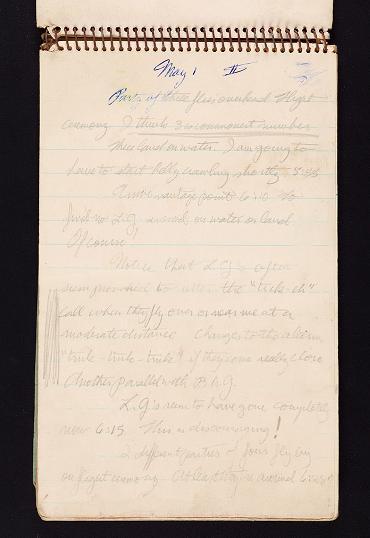 May 1 II
Party of three flies overhead. Flight
ceremony. I think 3 is commonest number
These land on water. I am going to
have to start belly crawling shortly 5:55
At vantage point 6:10 to
find no L.G. around, on water or land
Of course!
Notice that L.G's after
seem to utter the "tuk-eh"
call when they fly over or near me at a
moderate distance Changes to the alarm
"tuk-tuk-tuk" if they come really close
Another parallel with B.G.
L.G's seem to have gone completely
now 6:15 This is discouraging!
2 different parties of four fly by
on flight ceremony. At least they're around